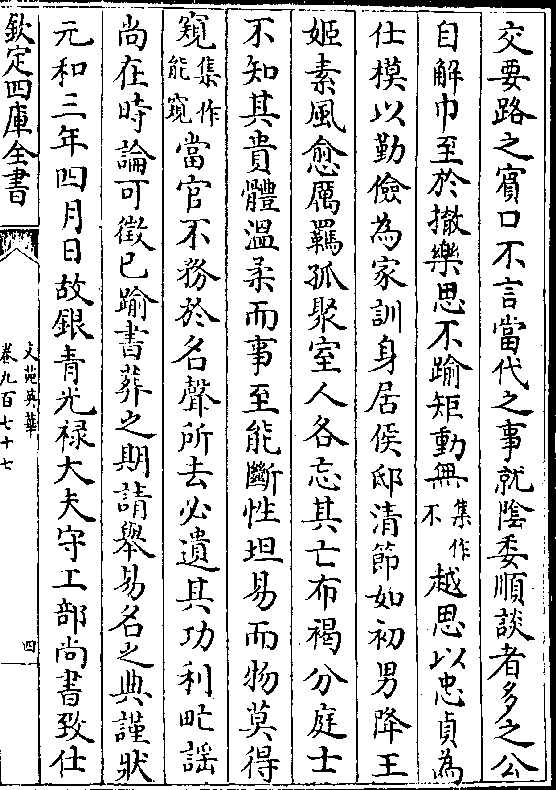 交要路之賓口不言當代之事就陰委順談者多之公
自解巾至於撤樂思不踰矩動無集作不越思以忠貞為
仕模以勤儉為家訓身居侯邸清節如初男降王
姬素風愈厲羈孤聚室人各忘其亡布褐分庭士
不知其貴體溫柔而事至能斷性坦易而物莫得
窺集作能窺當官不務於名聲所去必遺其功利甿謡
尚在時論可徵已踰書葬之期請舉易名之典謹狀
元和三年四月日故銀青光禄大夫守工部尚書致仕
欽定四庫全書
文苑英華
卷九百七十七
四